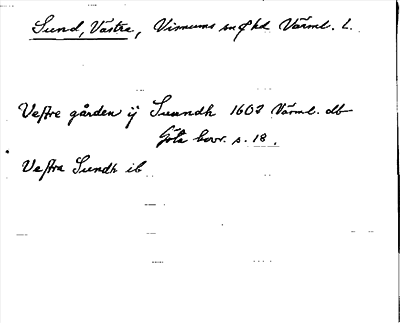 Sund, Västra, Visnums sn o hd Värml. L.
Vestre gården ij Suundh 1602 Värml. db
Göta hovr. s. 18.
Vestra Sundh ib